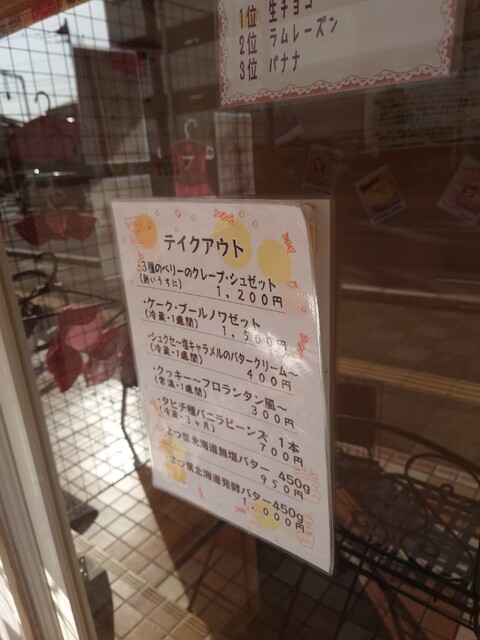 1位 生チョコ
2位 ラムレーズン
3位 バナナ
テイクアウト
・3種のベリーのクレープ・シュゼット
(熱いうちに) 1,200円
・ケーク・ブールノワゼット
(冷蔵・1週間) 1,500円
・シュクセ〜塩キャラメルのバタークリーム〜
(冷蔵・1週間) 400円
・クッキー〜フロランタン風〜
(常温・1週間) 300円
・タヒチ種バニラビーンズ 1本
(冷蔵・3ヶ月) 700円
・よつ葉北海道無塩バター 450g
950円
・よつ葉北海道発酵バター450g
1,000円